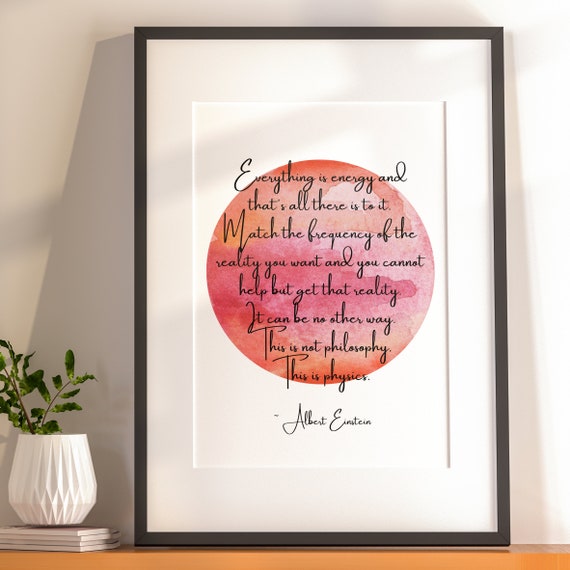 Everything is energy and
that's all there is to it.
Match the frequency of the
reality you want and you cannot
help but get that reality.
It can be no other way.
This is not philosophy.
This is physics.
~ Albert Einstein